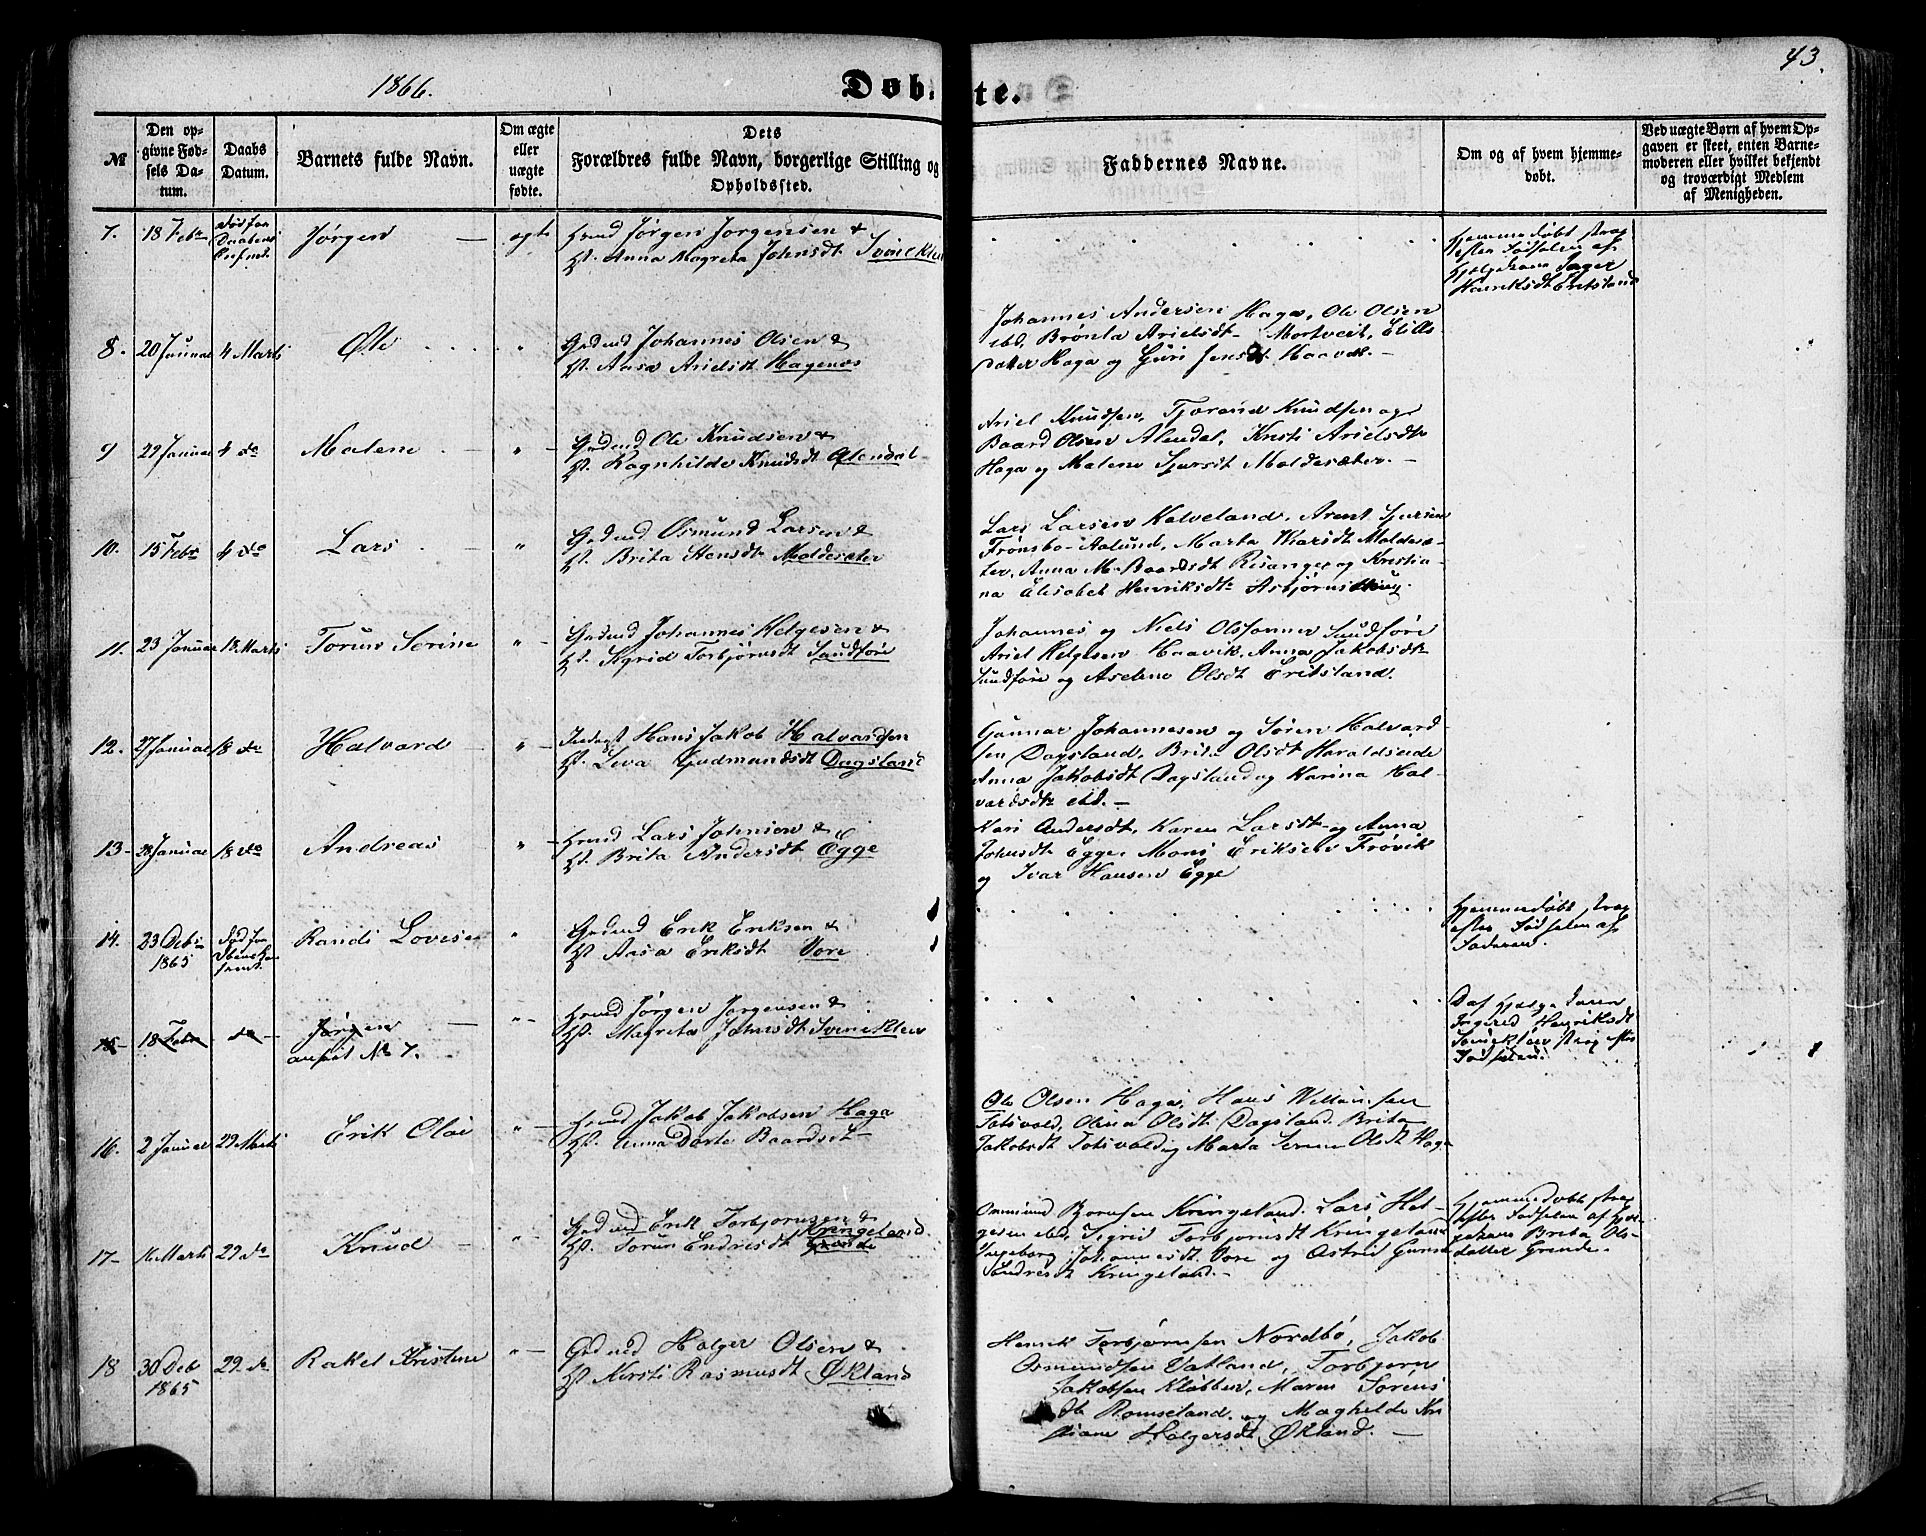 1866.
Døb-
te.
43.
№
Den op-
givne Fød-
sels Da-
tum.
Daabs
Datum.
Barnets fulde Navn.
Om ægte
eller
uægte
fødte.
Dets
Forældres fulde Navn, borgerlige Stilling og
Opholdssted.
Faddernes Navne.
Om og af hvem hjemme-
døbt.
Ved uægte Børn af hvem Op-
gaven er skeet, enten Barne-
moderen eller hvilket bekjendt
og troværdigt Medlem
af Menigheden.
7. 18 Febr Jørgen ægte Jørgen Jørgensen &
Anna Magreta Johnsdt
Hjemmedøbt strax
efter Fødselen af
Henriksdt Eritsland
8. 20 Januar 4 Marts Ole Johannes Olsen &
Aasa Arielsdt Hagenæs
Johannes Andersen Haga, Ole Olsen
ibd, Brønla Arielsdt Mortveit,
Haga og Guri Jensdt Haavik.
9 29 Januar 4 do Malene Ole Knudsen &
Ragnhilde Knudsdt Alendal
Ariel Knudsen, Tjorand Knudsen og
Baard Olsen Alendal, Kirsti Arielsdtr
Haga og Malene Sjursdt Moldesæter.
10. 15 Febr 4 do Lars Osmund Larsen &
Brita Hansdt Moldesæter
Lars Larsen Halveland, Arent Sjursen
Frønsbo-Aalund, Marta Moldesæ-
ter, Anna M. Baardsdt Risanger og Kristia-
na Elisabet Henriksdt Asbjørnshaug.
11. 23 Januar 18 Marts Torun Serine Johannes Helgesen &
Sigrid Torbjørnsdt Sundføre
Johannes og Niels Olssønner Sundføre
Ariel Helgesen Haavik, Anna Jakobsdt
Sundføre og Aselene Olsdt Eritsland.
12. 27 Januar 18 do Halvard Hans Jakob Halvardsen
Siva Gudmundsdt Dagsland
Gunnar Johannesen og Søren Halvard-
sen Dagsland, Brita Olsdt Haraldseide
Anna Jakobsdt Dagsland og Karina Hal-
vardsdtr ibd.
13 28 Januar 18 do Andreas Lars Johnsen &
Brita Andersdt Egge
Kari Andersdt, Karen Larsdt og Anna
Johnsdt Egge. Mons Eriksen Frøvik
og Ivar Hansen Egge
14. 23 Debr
1865 Randi Lovise Erik Eriksen &
Aasa Eriksdt Vore
Hjemmedøbt strax
efter Fødselen af
Faderen.
15 18 Febr do Jørgen
anført № 7. Jørgen Jørgensen &
Magreta Johnsdt
Ingered Henriksdt
strax efter
Fødselen.
16. 2 Januar 29 Marts Erik Olai Jakob Jakobsen Haga
Anna Dorte Baardsdt
Ole Olsen Haga, Hans Villumsen
Totsvold, Olina Olsdt Dagsland. Brita
Jakobsdt Totsvold og Marta Serene Olsdt Haga
17 Marts 29 do Knud Erik Torbjørnsen &
Torun Endresdt Kringeland
Grinde
Ommund Kringeland. Lars Hel-
gesen ibd, Sigrid Torbjørnsdt Kringeland
Ingeborg Johannesdt. Vore og Astrid
Endresdt Kringeland.
Hjemmedøbt strax
efter Fødselen af
Brita Ols-
datter Grinde.
18 30 Deb
1865 29 do Rakel Kristine Holger Olsen &
Kirsti Rasmusdt Økland
Henrik Torbjørnsen Nordbø, Jakob
Osmundsen Vatland, Torbjørn
Jakobsen Klubben, Maren Sørens
dtr Romseland og Maghilde Kri
stiane Holgersdt Økland.